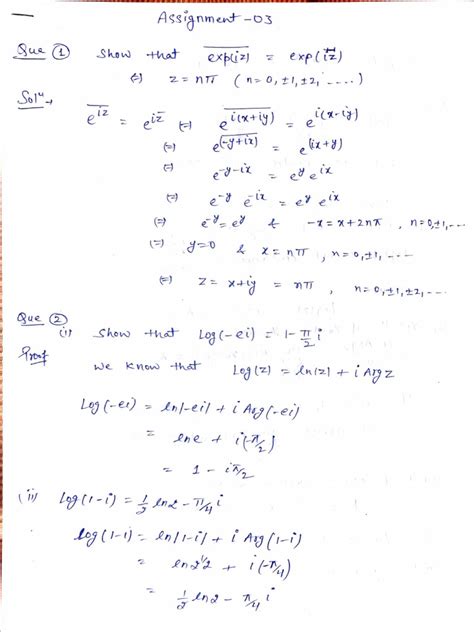 Assignment -03
Que ① Show that \overline{exp(iz)} = exp(i\bar{z})
⇔ z = nπ (n = 0, ±1, ±2, ....)
Solⁿ→ \overline{e^{iz}} = e^{i\bar{z}} ⇔ \overline{e^{i(x+iy)}} = e^{i(x-iy)}
⇔ \overline{e^{(-y+ix)}} = e^{(ix+y)}
⇔ e^{-y-ix} = e^{y} e^{ix}
⇔ e^{-y} e^{-ix} = e^{y} e^{ix}
⇔ e^{-y} = e^{y} & -x = x+2nπ, n=0,±1,...
⇔ y=0 & x = nπ, n=0,±1,...
⇔ z = x+iy = nπ, n=0,±1,±2,...
Que ②
(i) Show that Log(-ei) = 1-\frac{π}{2}i
Proof We know that Log(z) = ln|z| + i Arg z
Log(-ei) = ln|-ei| + i Arg(-ei)
= ln e + i(-π/2)
= 1 - iπ/2
(ii) Log(1-i) = \frac{1}{2} ln2 - π/4 i
log(1-i) = ln|1-i| + i Arg(1-i)
= ln 2^{1/2} + i(-π/4)
= \frac{1}{2} ln2 - π/4 i